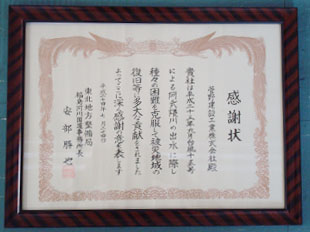 感謝状
菅野建設工業株式会社殿
貴社は平成二十三年九月台風十五号
による阿武隈川の出水に際し
種々の困難を克服して被災地域の
復旧等に多大な貢献をされました
よってここに深く感謝の意を表します
平成二十四年七月二十四日
東北地方整備局
福島河川国道事務所長
安部勝也